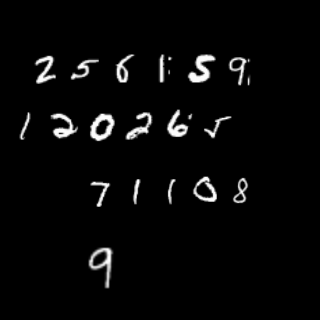 256159
120265
71108
9